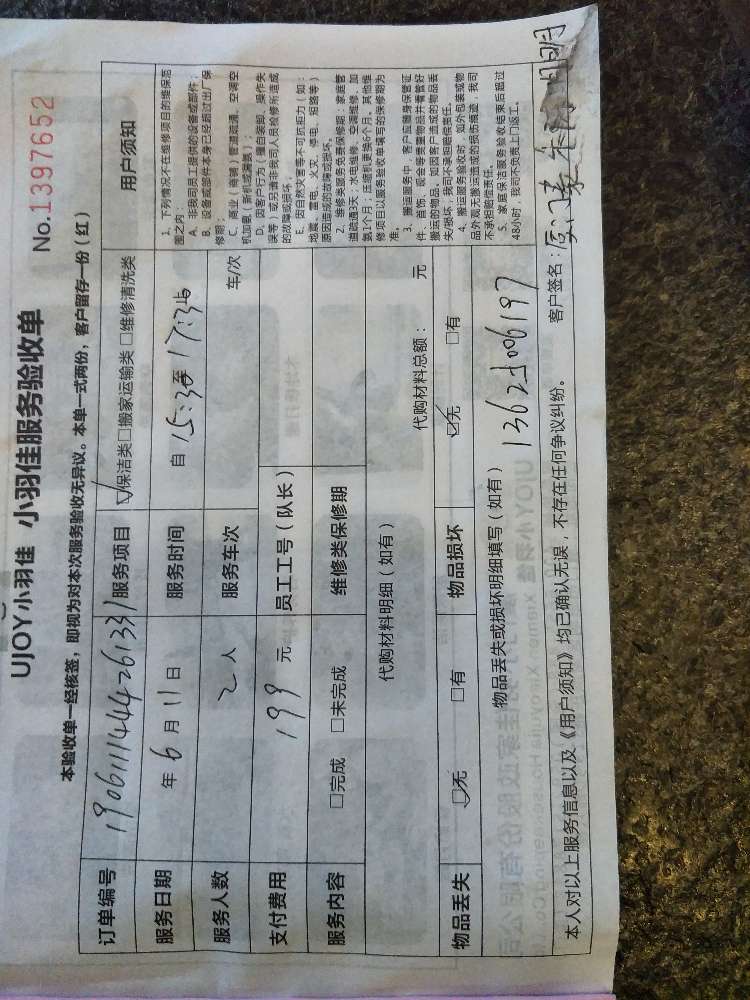 UJOY小羽佳 小羽佳服务验收单 No.1397652
本验收单一经核签，即视为对本次服务验收无异议。本单一式两份，客户留存一份（红）
订单编号 服务项目 保洁类 □搬家运输类 □维修清洗类 用户须知
服务日期 年 6 月 11 日 服务时间 自 15:36 至 17:36
服务人数 2 人 服务车次 车/次
支付费用 199 元 员工工号（队长）
服务内容 □完成 □未完成 维修类保修期
代购材料明细（如有） 代购材料总额： 元
物品丢失 无 □有 物品损坏 无 □有
物品丢失或损坏明细填写（如有）
本人对以上服务信息以及《用户须知》均已确认无误，不存在任何争议纠纷。 客户签名：
1、下列情况不在维修项目的维保范
围之内：
A、非我司员工提供的设备或部件；
B、设备或部件本身已经超过出厂保
修期；
C、商业（商铺）管道疏通、空调空
机加氨（新机或漏氨）；
D、因客户行为（擅自装卸、操作失
误等）或另请非我司人员检修所造成
的故障或损坏；
E、因自然灾害等不可抗拒力（如：
地震、雷电、火灾、停电、短路等）
原因造成的故障或损坏。
2、维修类服务免费保修期：家庭管
道疏通3天；水电维修、空调维修、加
氨1个月；压缩机更换6个月。其他维
修项目以服务验收单填写的保修期为
准。
3、搬运服务中，客户应随身保管证
件、首饰、现金等贵重物品并看管好
搬运的物品。如因客户造成的物品丢
失/损坏，我司不承担赔偿责任。
4、搬运服务验收时，如外包装或物
品外观无搬运造成的损伤痕迹，我司
不承担赔偿责任。
5、家庭保洁服务验收结束后超过
48小时，我司不负责上门返工。